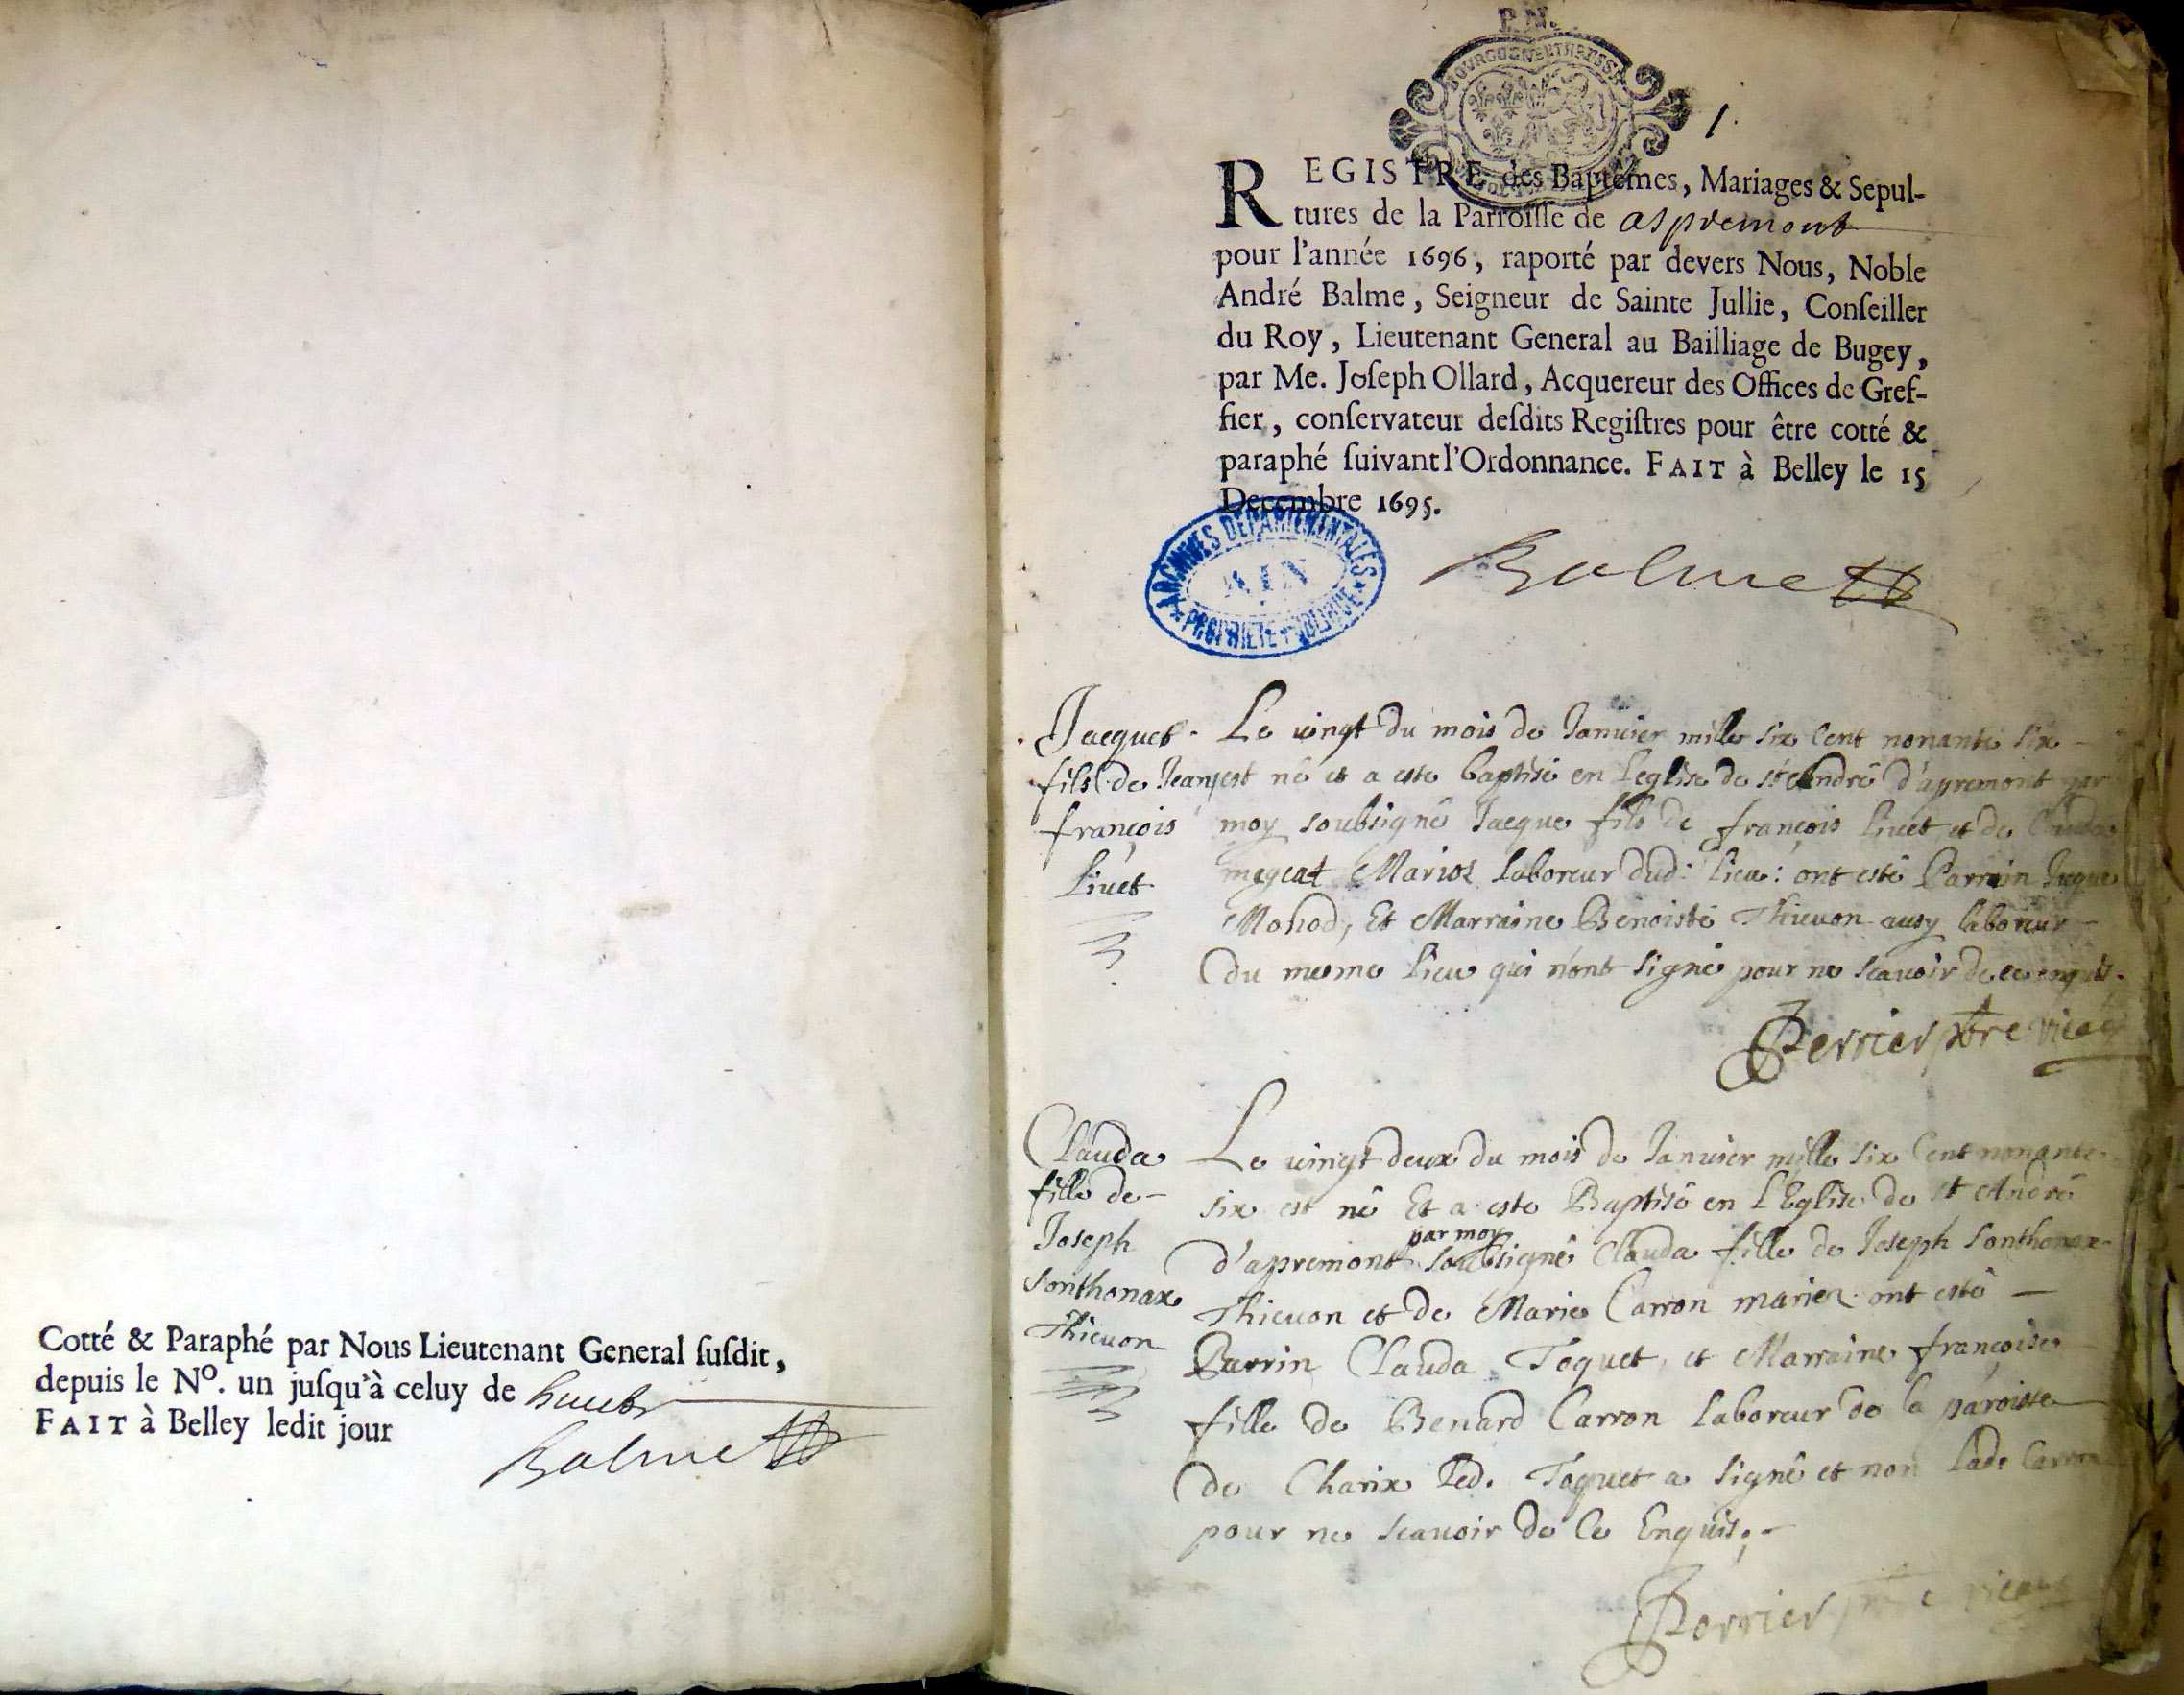 Cotté & Paraphé par Nous Lieutenant General suſdit,
depuis le Nº. un juſqu'à celuy de
FAIT à Belley ledit jour
Balme
1.
REGISTRE des Baptêmes, Mariages & Sepul-
tures de la Parroiſſe de aspremont
pour l'année 1696, raporté par devers Nous, Noble
André Balme, Seigneur de Sainte Jullie, Conſeiller
du Roy, Lieutenant General au Bailliage de Bugey,
par Me. Joſeph Ollard, Acquereur des Offices de Gref-
fier, conſervateur deſdits Regiſtres pour être cotté &
paraphé ſuivant l'Ordonnance. FAIT à Belley le 15
Decembre 1695.
ARCHIVES DEPARTEMENTALES
AIN
PROPRIETE PUBLIQUE
Balme
Jacques
fils de Jean
françois
Livet
Le vingt du mois de Janvier mille six Cent nonante six
est né et a esté baptisé en l'eglise de st André d'apremont par
moy soubsigné Jacque fils de françois Livet et de Clauda
Mariez laboreur dud: lieu: ont esté Parrain Jaque
Mohod, Et Marraine Benoiste Thievon ausy laboreur
du mesme lieu qui n'ont signé pour ne scavoir de ce enquis.
Perrier ptre vicaire
Clauda
fille de
Joseph
Sonthonax
Thievon
Le vingt deux du mois de Janvier mille six Cent nonante
six est né Et a esté Baptisé en l'Eglise de st André
d'apremont par moy soubsigné Clauda fille de Joseph Sonthonax
Thievon et de Marie Carron mariez ont esté
Parrin Clauda Toquet, et Marraine françoise
fille de Benard Carron Laboreur de la paroisse
de Charix Led. Toquet a signé et non Lade Carron
pour ne scavoir de Ce Enquis.
Perrier